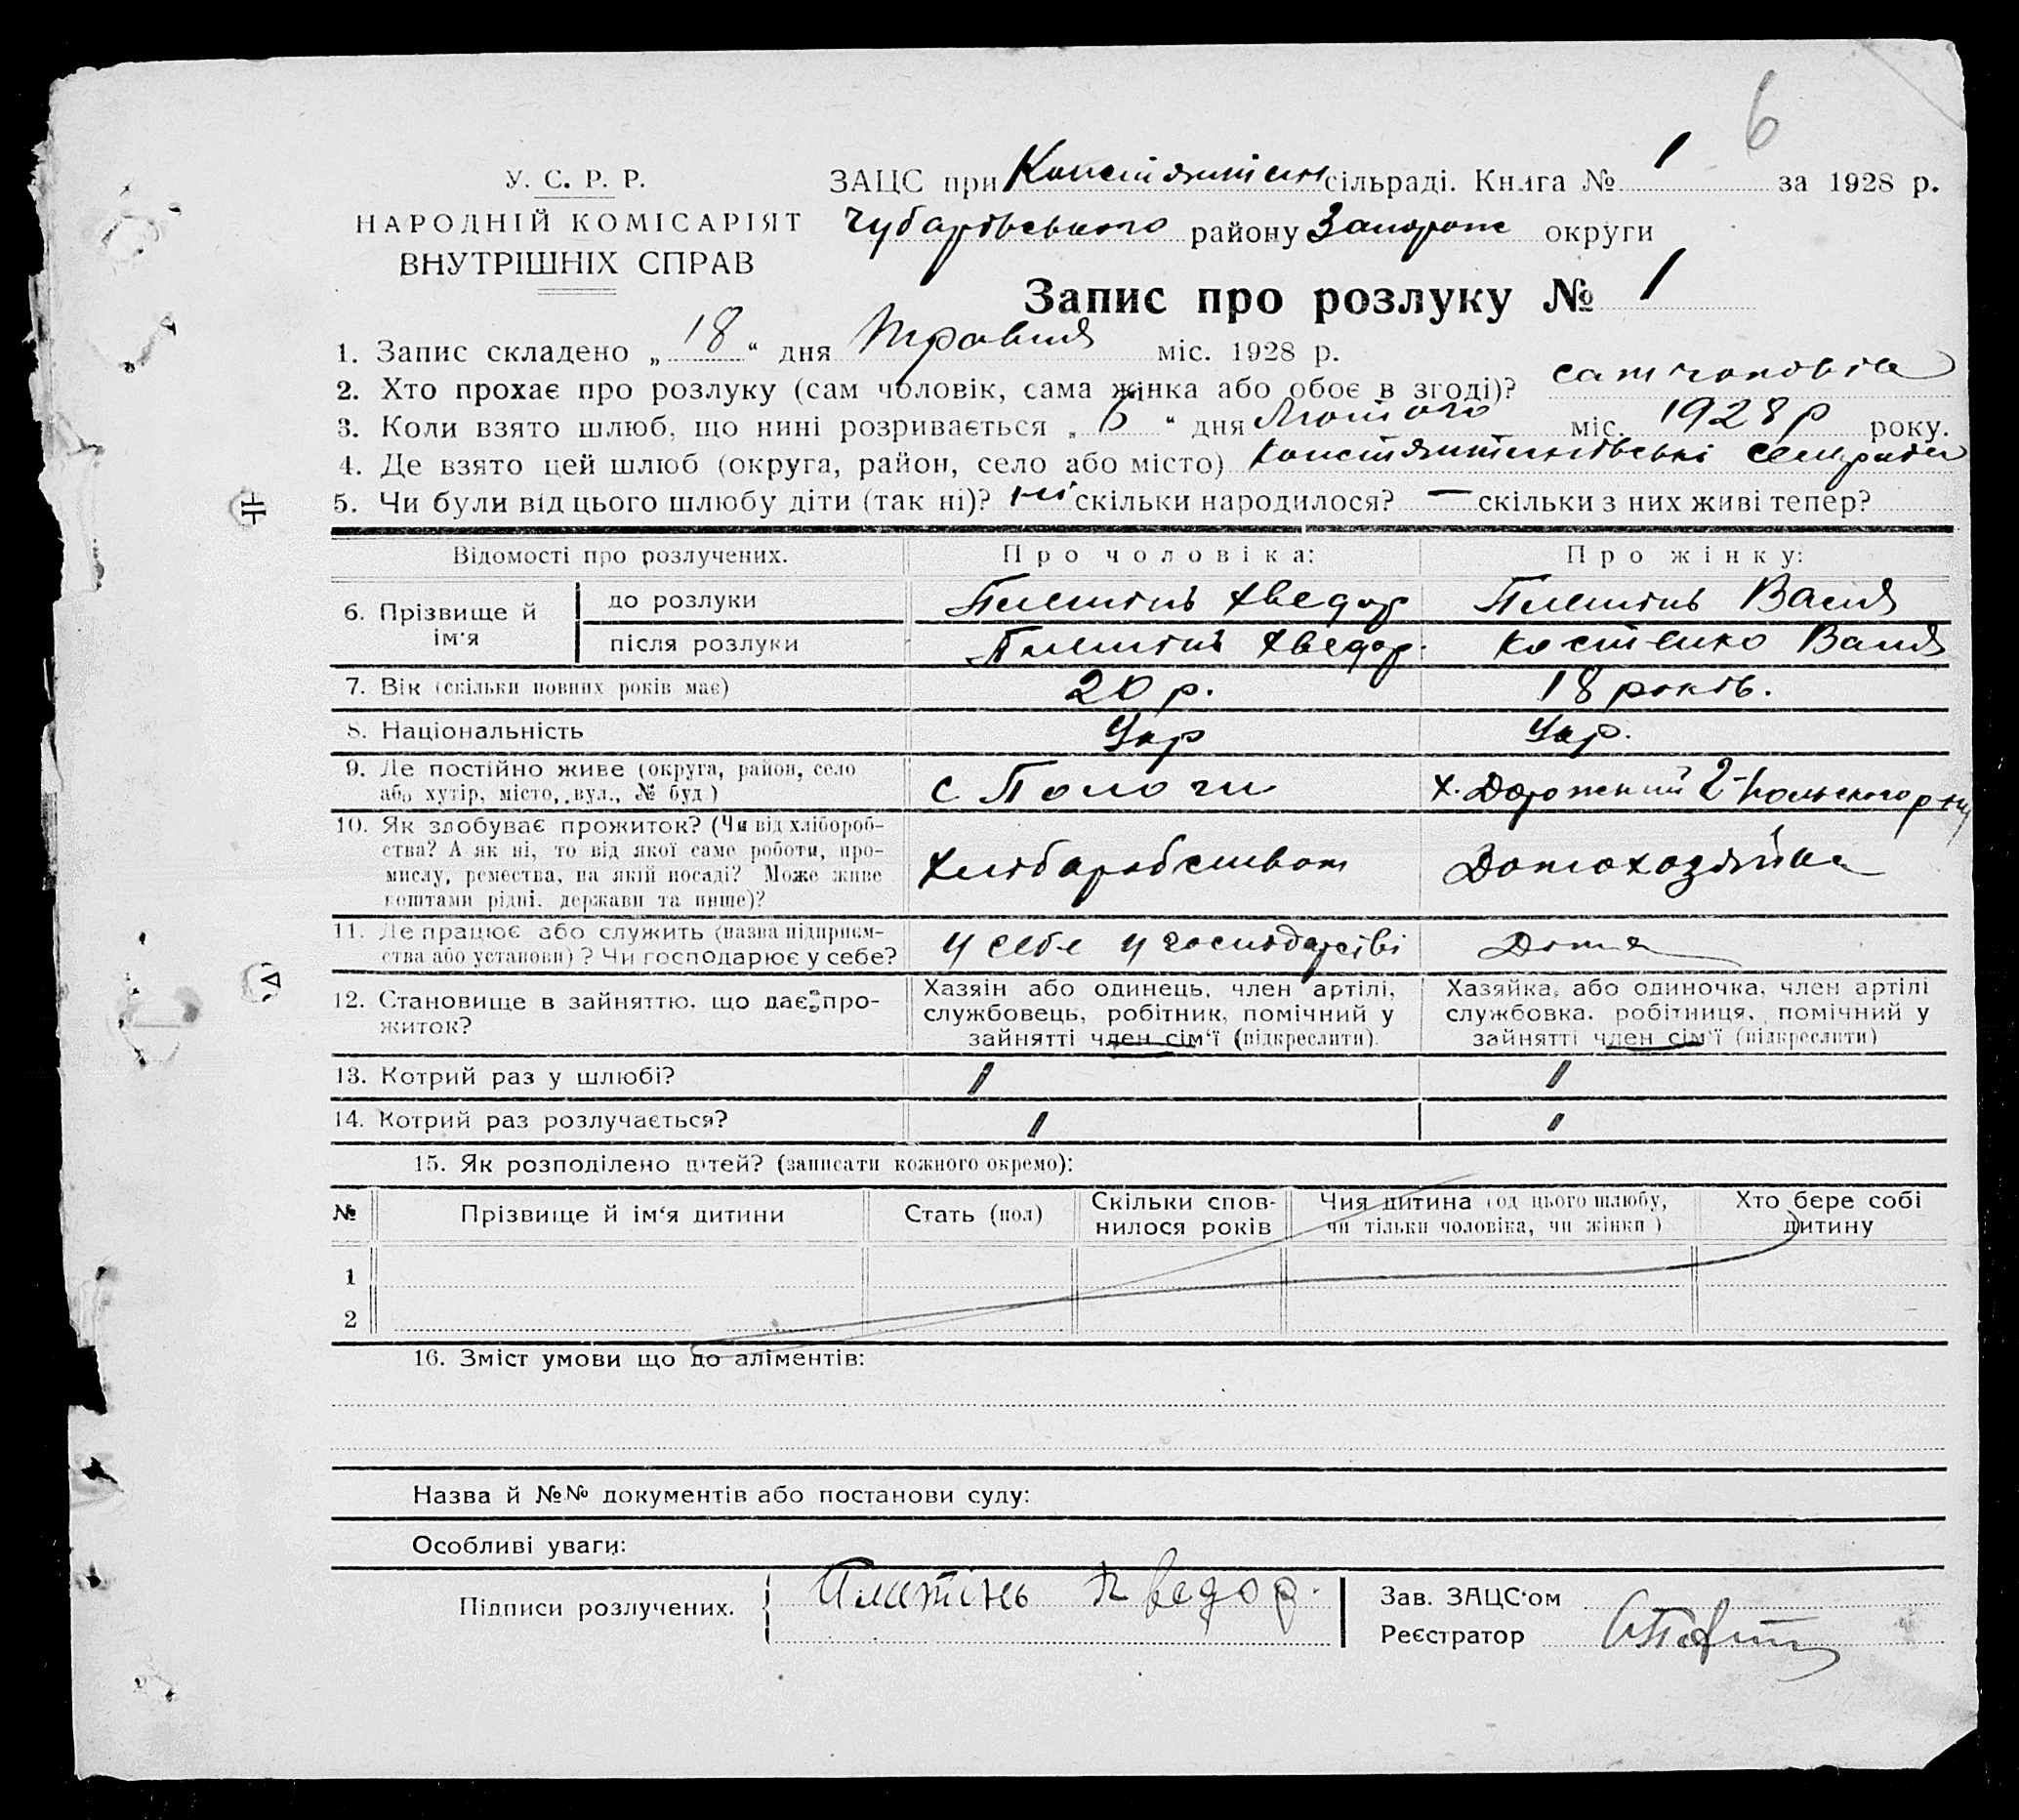 6
У. С. Р. Р.
НАРОДНІЙ КОМІСАРІЯТ
ВНУТРІШНІХ СПРАВ
ЗАЦС при Констянтин сільраді. Книга № 1 за 1928 р.
Чубарівського району Запорож округи
Запис про розлуку № 1
1. Запис складено „ 18 “ дня Травня міс. 1928 р.
2. Хто прохає про розлуку (сам чоловік, сама жінка або обоє в згоді)? сам чоловік
3. Коли взято шлюб, що нині розривається „ 6 “ дня Лютого міс. 1928 р року.
4. Де взято цей шлюб (округа, район, село або місто) Констянтинівські сельради
5. Чи були від цього шлюбу діти (так ні)? ні скільки народилося? — скільки з них живі тепер?
Відомості про розлучених. Про чоловіка: Про жінку:
6. Прізвище й ім'я до розлуки Плетінь Хведор Плетінь Валя
після розлуки Плетінь Хведор. Костенко Валя
7. Вік (скільки повних років має) 20 р. 18 років.
8. Національність Укр Укр.
9. Де постійно живе (округа, район, село
або хутір, місто, вул., № буд.) с Пологи х. Дорожний 2-
10. Як здобуває прожиток? (Чи від хлібороб-
ства? А як ні, то від якої саме роботи, про-
мислу, ремества, на якій посаді? Може живе
коштами рідні, держави та инше)? Хлібаробством Домохозяйка
11. Де працює або служить (назва підприєм-
ства або установи)? Чи господарює у себе? у себе у господарстві Дома
12. Становище в зайняттю, що дає про-
житок?
Хазяін або одинець, член артілі,
службовець, робітник, помічний у
зайнятті член сім'ї (підкреслити).
Хазяйка, або одиночка, член артілі
службовка, робітниця, помічний у
зайнятті член сім'ї (підкреслити)
13. Котрий раз у шлюбі? 1 1
14. Котрий раз розлучається? 1 1
15. Як розподілено дітей? (записати кожного окремо):
№ Прізвище й ім'я дитини Стать (пол) Скільки спов-
нилося років Чия дитина (од цього шлюбу,
чи тільки чоловіка, чи жінки) Хто бере собі
дитину
1
2
16. Зміст умови що до аліментів:
Назва й №№ документів або постанови суду:
Особливі уваги:
Підписи розлучених. Плетінь Хведор. Зав. ЗАЦС'ом
Реєстратор